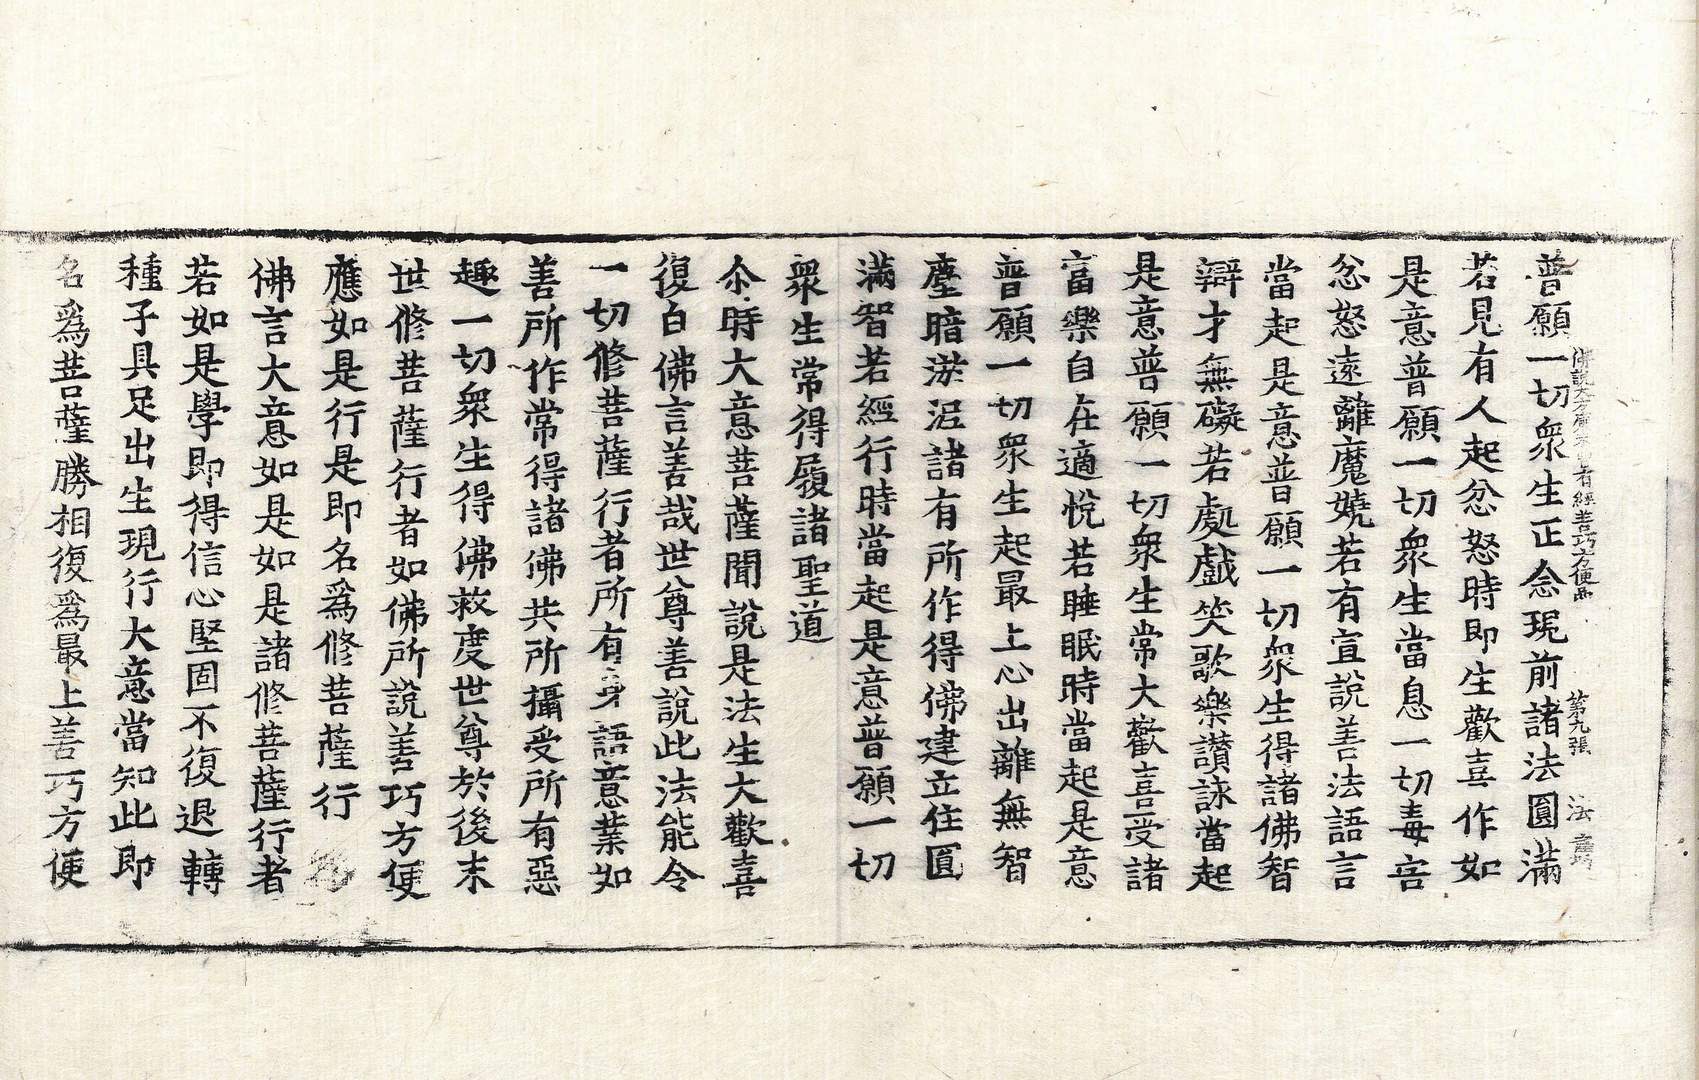 佛說大方廣未曾有經善巧方便品 第九張 法
普願一切衆生正念現前諸法圓滿
若見有人起忿怒時即生歡喜作如
是意普願一切衆生當息一切毒害
忿怒遠離魔嬈若有宣說善法語言
當起是意普願一切衆生得諸佛智
辯才無礙若處戲笑歌樂讚詠當起
是意普願一切衆生常大歡喜受諸
富樂自在適悅若睡眠時當起是意
普願一切衆生起最上心出離無智
塵暗淤泥諸有所作得佛建立住圓
滿智若經行時當起是意普願一切
衆生常得履諸聖道
尒時大意菩薩聞說是法生大歡喜
復白佛言善哉世尊善說此法能令
一切修菩薩行者所有身語意業如
善所作常得諸佛共所攝受所有惡
趣一切衆生得佛救度世尊於後末
世修菩薩行者如佛所說善巧方便
應如是行是即名爲修菩薩行
佛言大意如是如是諸修菩薩行者
若如是學即得信心堅固不復退轉
種子具足出生現行大意當知此即
名爲菩薩勝相復爲最上善巧方便